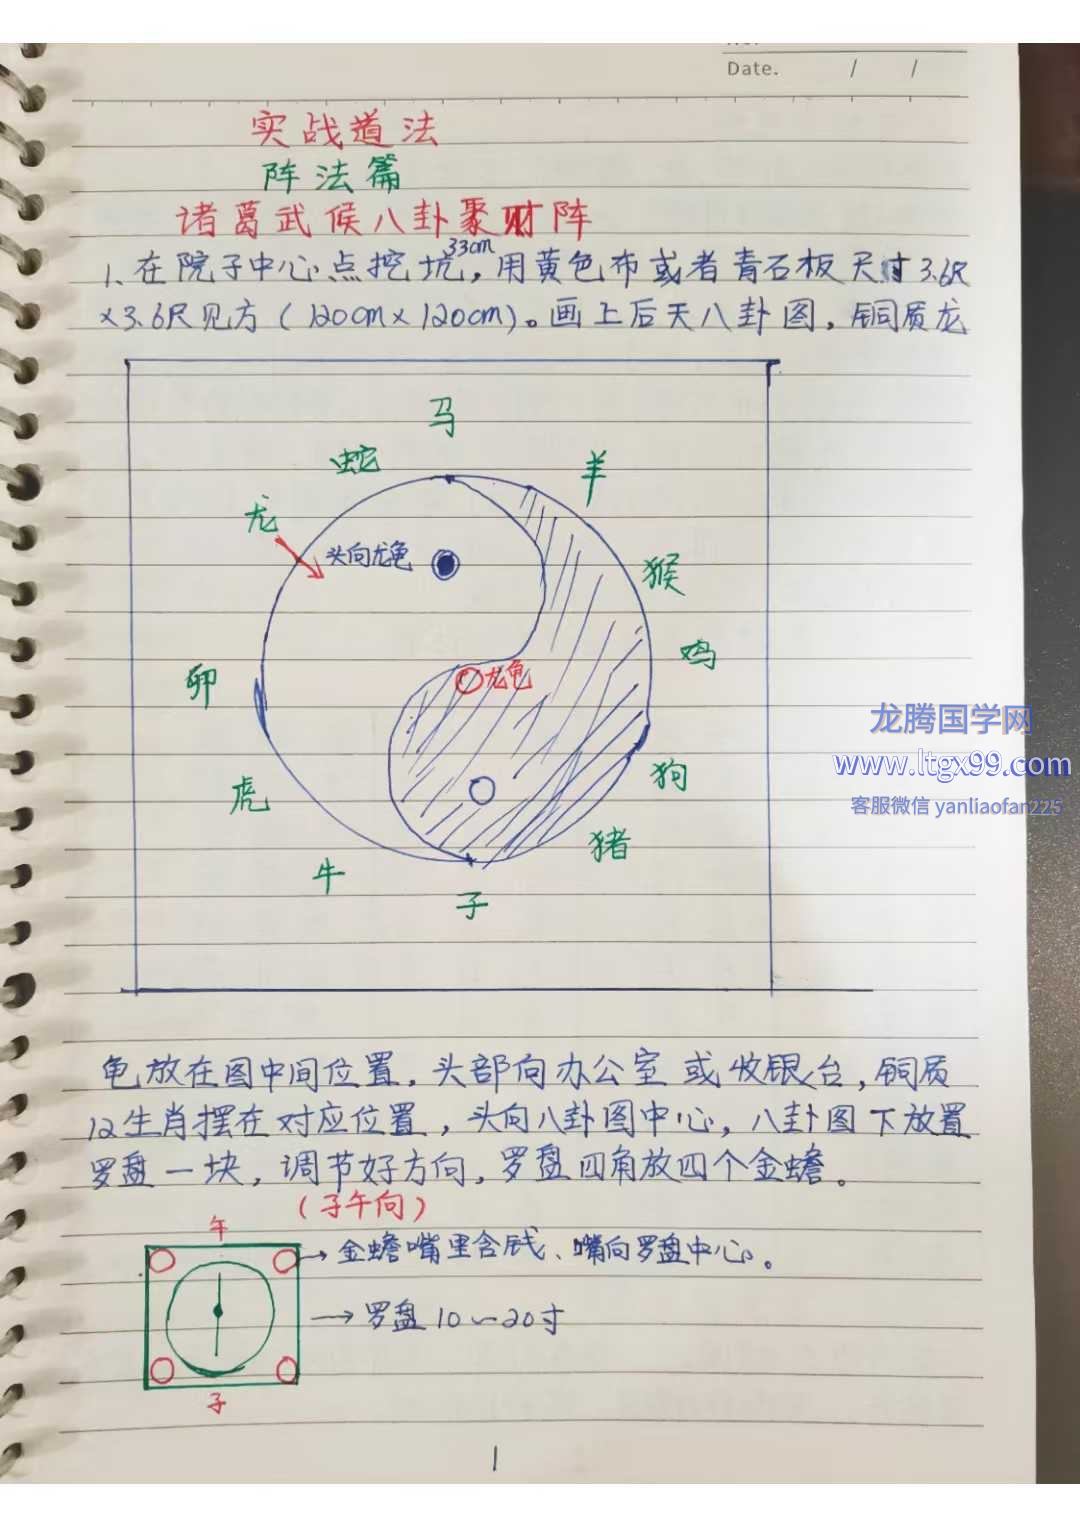 Date. / /
实战道法
阵法篇
诸葛武候八卦聚财阵
33cm
1、在院子中心点挖坑，用黄色布或者青石板尺寸3.6尺
×3.6尺见方（120cm×120cm）。画上后天八卦图，铜质龙
马
蛇
羊
龙
头向龙龟
猴
卯
龙龟
鸡
龙腾国学网
www.ltgx99.com
客服微信 yanliaofan225
狗
虎
猪
牛
子
龟放在图中间位置，头部向办公室或收银台，铜质
12生肖摆在对应位置，头向八卦图中心，八卦图下放置
罗盘一块，调节好方向，罗盘四角放四个金蟾。
（子午向）
午
→金蟾嘴里含钱、嘴向罗盘中心。
→罗盘10~20寸
子
1